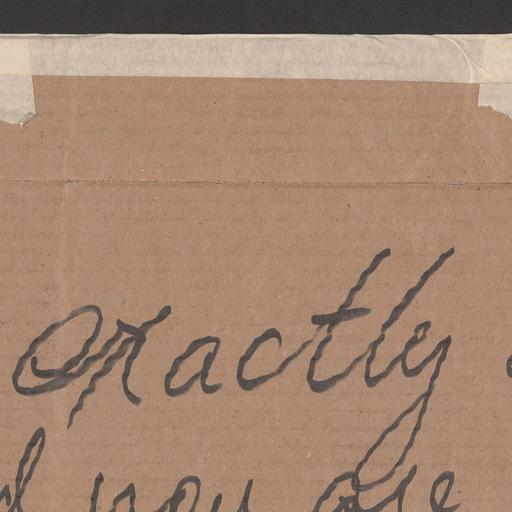 exactly
you are